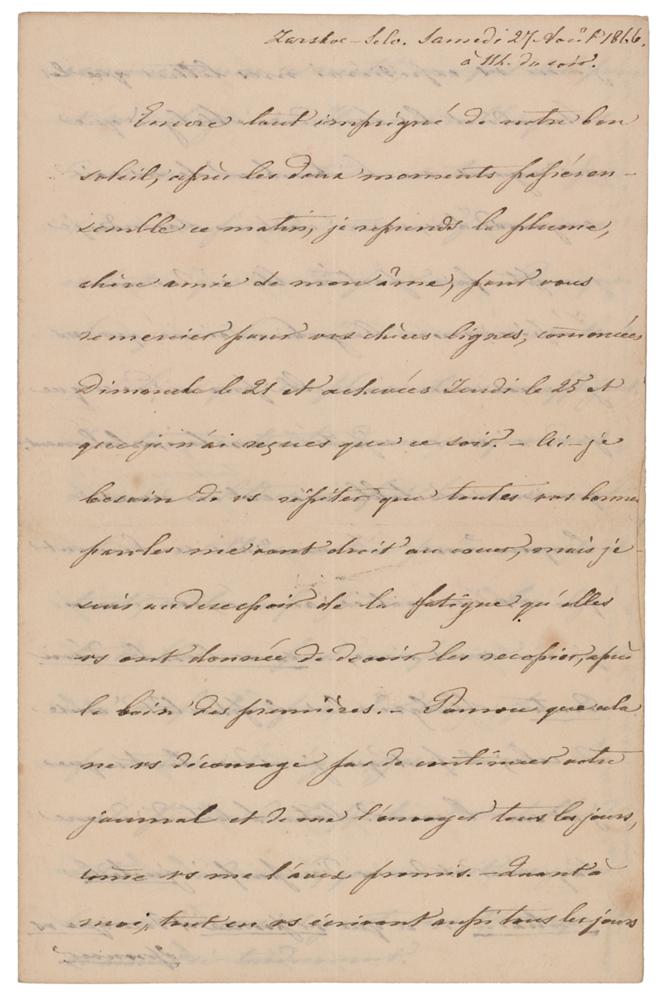 Zarskoe-Selo. Samedi 27 Août 1866.
à 11h. du soir.
Encore tout imprégné de notre bon
soleil, après les doux moments passés en-
semble ce matin, je reprends la plume,
chère amie de mon âme, pour vous
remercier pour vos chères lignes, commencées
Dimanche le 21 et achevées Jeudi le 25 et
que je n'ai reçues que ce soir. - Ai-je
besoin de vs répéter que toutes vos bonnes
paroles me vont droit au coeur, mais je
suis au desespoir de la fatigue qu'elles
vs ont donnée de devoir les recopier, après
le bain des premières. - Pourvu que cela
ne vs décourage pas de continuer votre
journal et de me l'envoyer tous les jours,
come vs me l'avez promis. - Quant à
moi, tout en vs écrivant aussi tous les jours